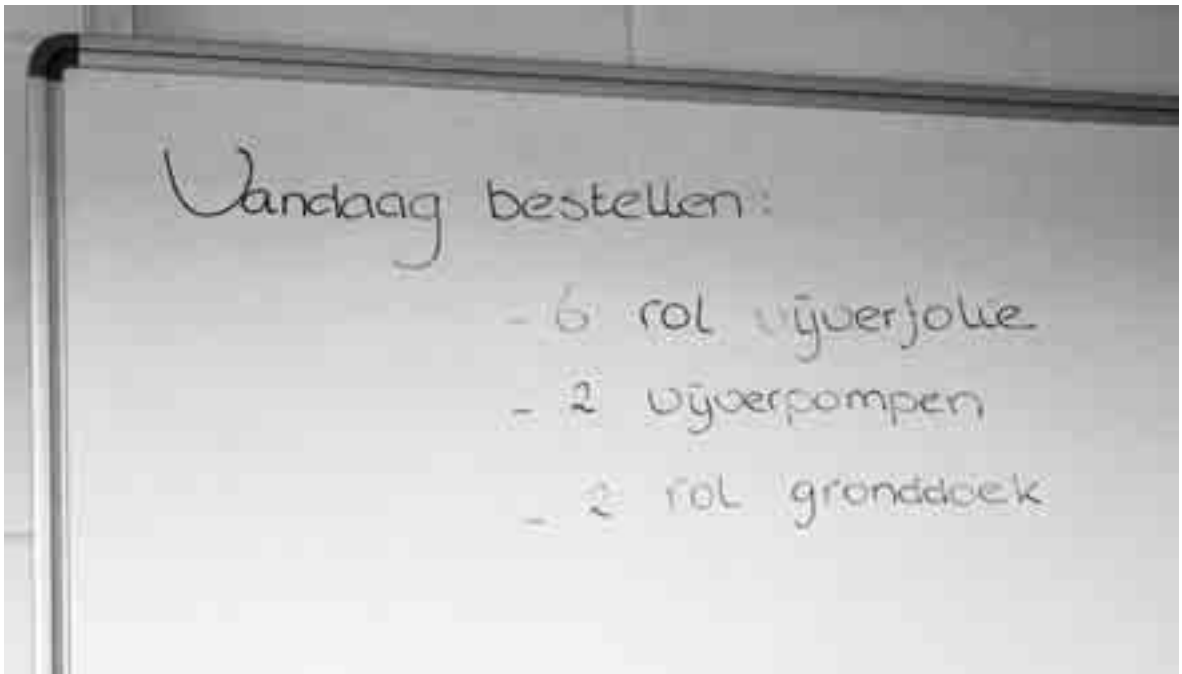 Vandaag bestellen:
- 6 rol vijverfolie
- 2 vijverpompen
- 2 rol gronddoek